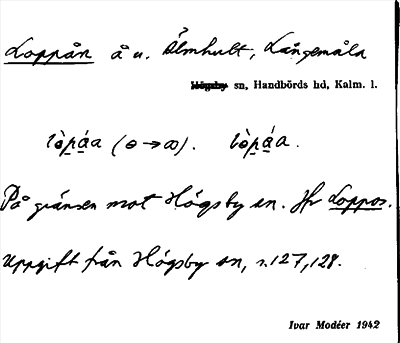 Loppån å u. Älmhult, Långemåla
Högsby sn, Handbörds hd, Kalm. l.
På gränsen mot Högsby sn. Jfr Loppos.
Uppgift från Högsby sn, s. 127, 128.
Ivar Modéer 1942